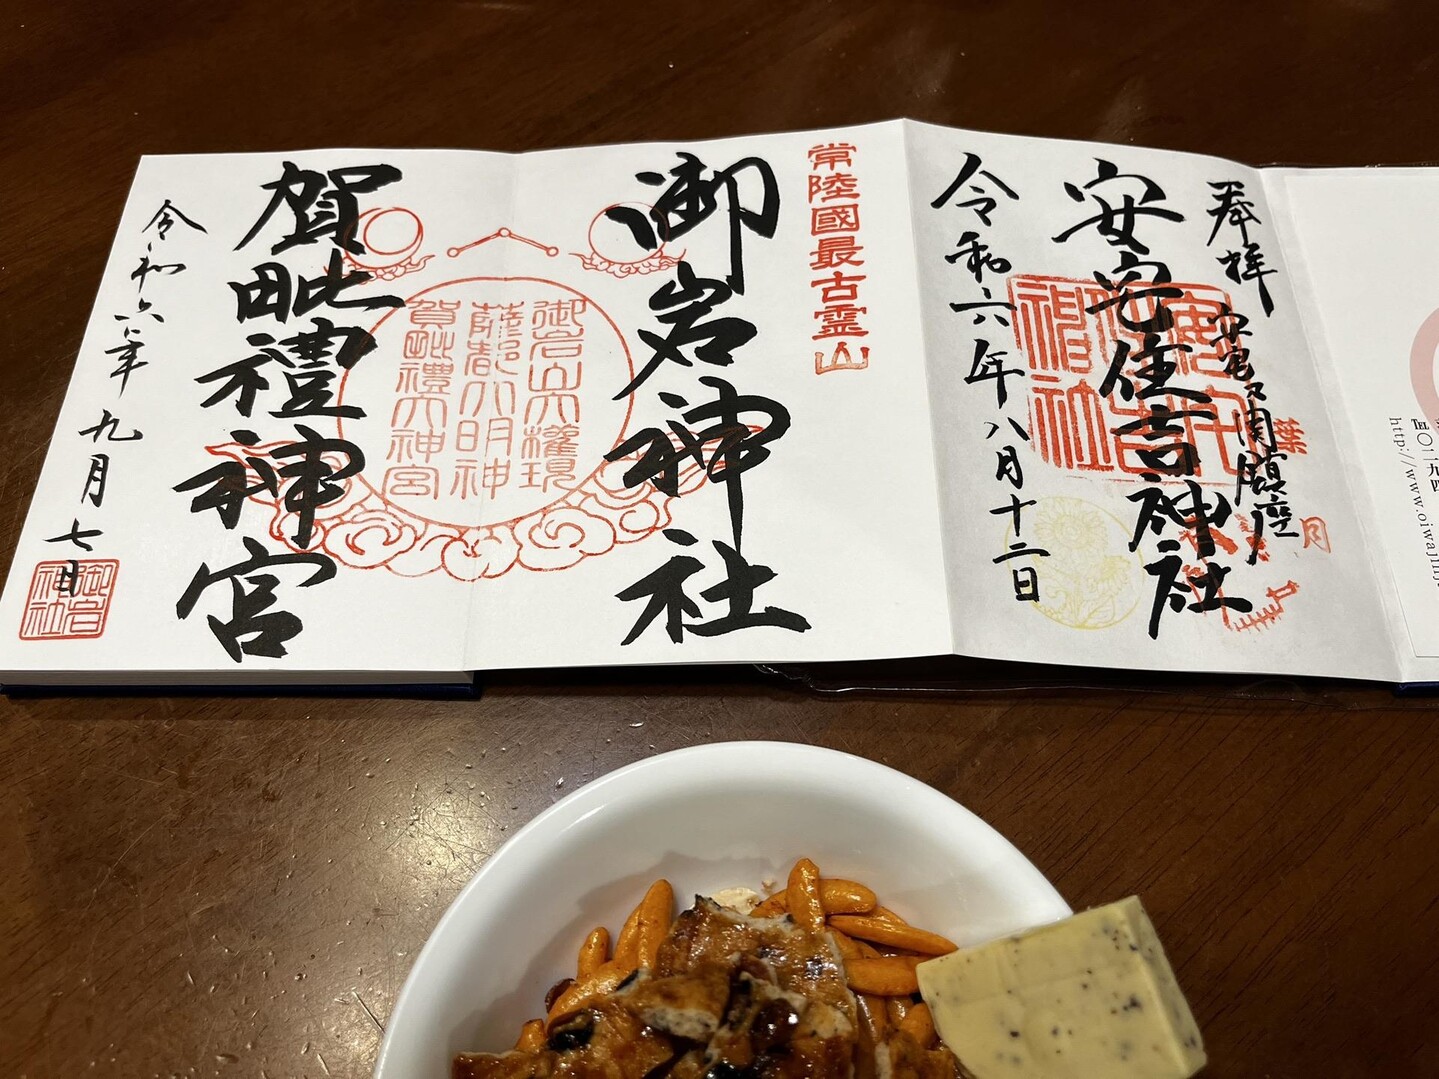 奉拝
安亀乃関鎮座
葉月
安安住吉神社
令和六年八月十二日
常陸國最古霊山
御岩神社
御岩山大権現
薩都大明神
賀毗禮大神宮
賀毗禮神宮
令和六年九月七日
御岩神社
〇二九四
http://www.oiwajinj